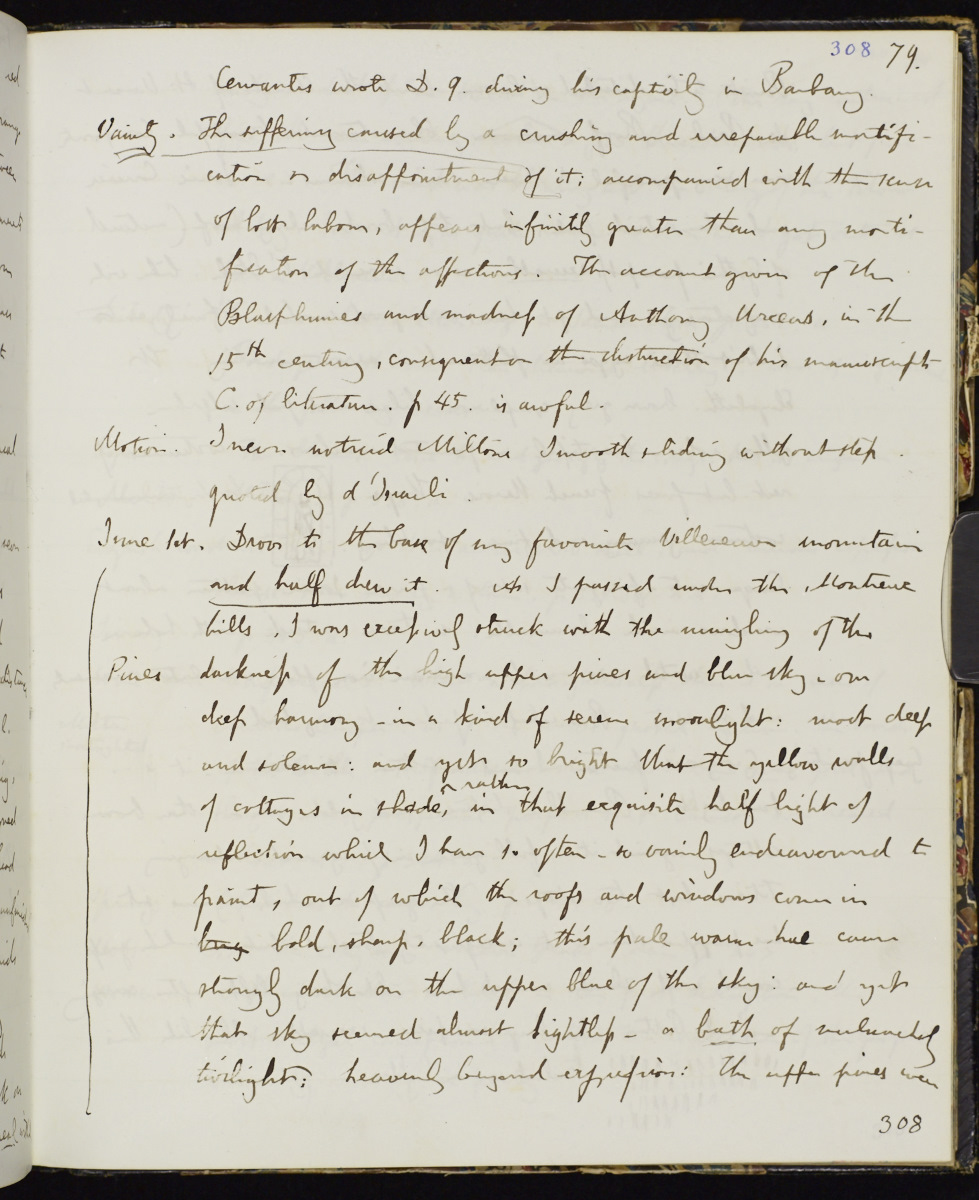 308 79.
Cervantes wrote D. Q. during his captivity in Barbary.
Vanity. The suffering caused by a crushing and irreparable mortifi-
cation or disappointment of it; accompanied with the sense
of lost labour, appears infinitely greater than any morti-
fication of the affections. The account given of the
Blasphemies and madness of Anthony Urceus, in the
15th century, consequent on the destruction of his manuscripts
C. of literature. p 45. is awful.
Motion. I never noticed Miltons Smooth sliding without step.
quoted by d'Israeli.
June 1st. Drove to the base of my favourite Villeneuve mountain
and half drew it. As I passed under the Montreux
hills, I was excessively struck with the mingling of the
Pines darkness of the high upper pines and blue sky, one
deep harmony - in a kind of serene moonlight: most deep
and solemn: and yet so bright that the yellow walls
of cottages in shade, or rather in that exquisite half light of
reflection which I have so often - so vainly endeavoured to
paint, out of which the roofs and windows come in
bold, sharp, black; this pale warm hue came
strongly dark on the upper blue of the sky: and yet
that sky seemed almost lightless - a bath of
twilight; heavenly beyond expression: The upper pines were
308